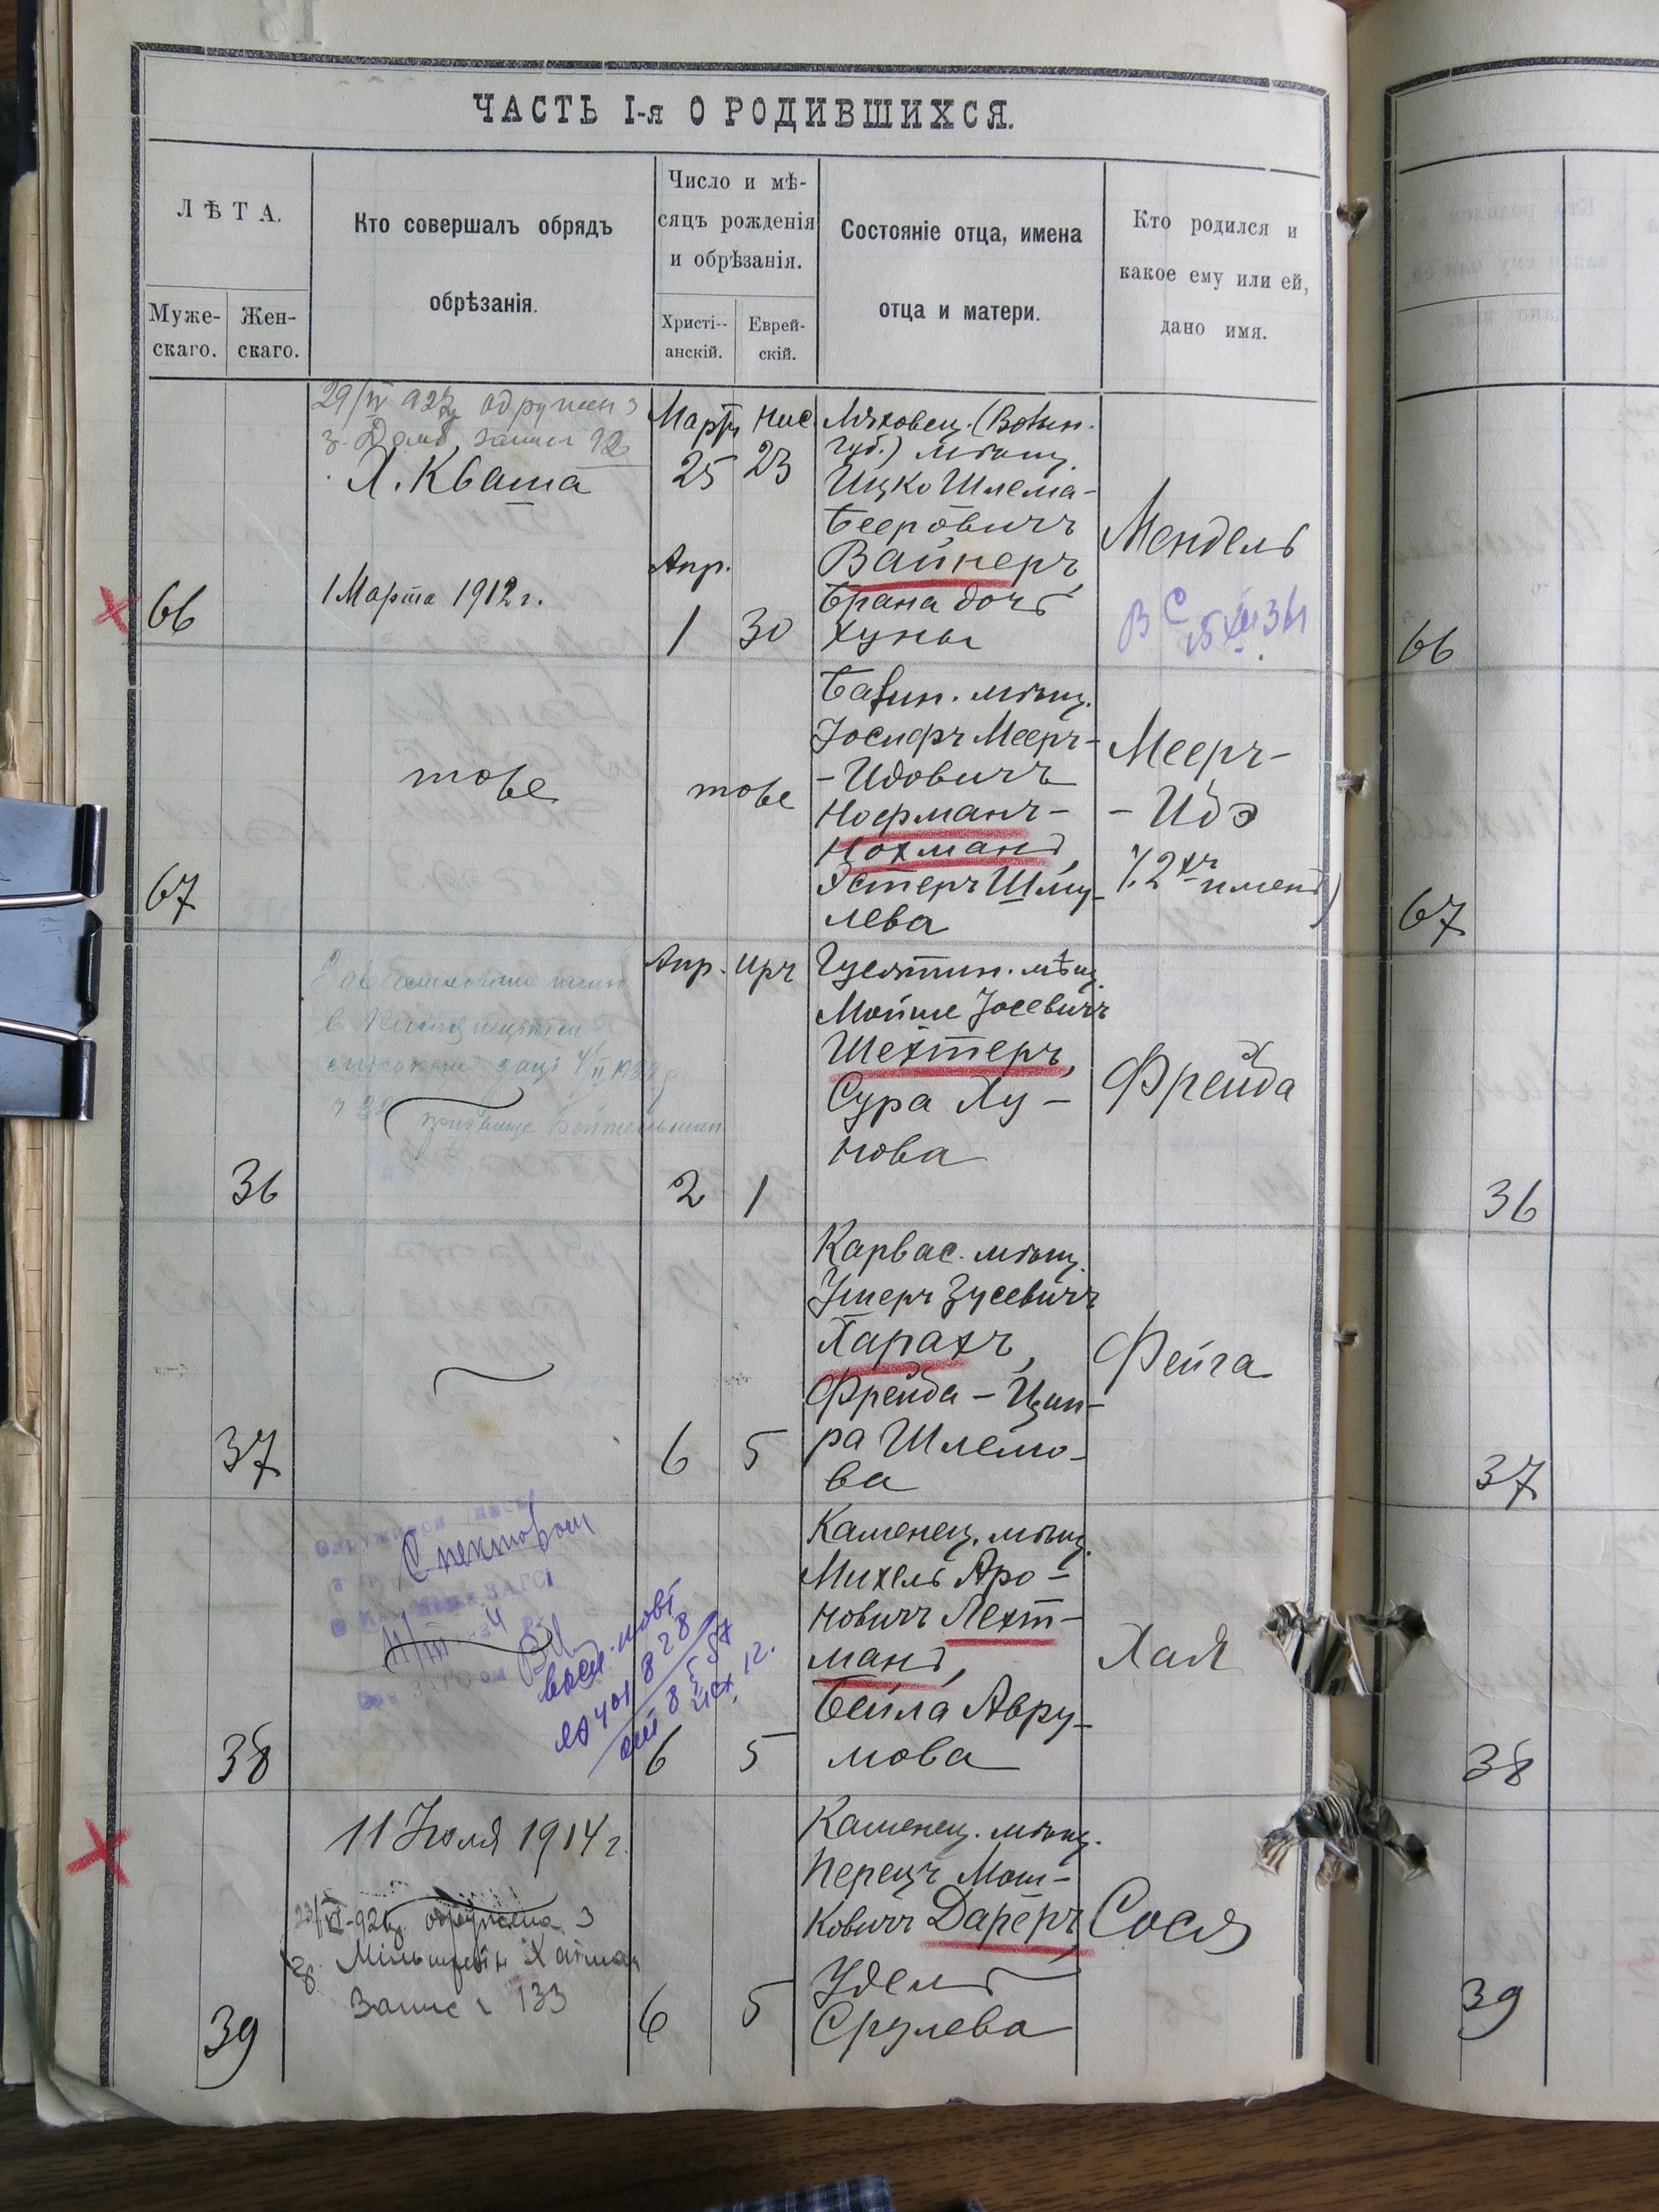 ЧАСТЬ I-я О РОДИВШИХСЯ.
ЛѢТА.
Муже-
скаго.
Жен-
скаго.
Кто совершалъ обрядъ
обрѣзанія.
Число и мѣ-
сяцъ рожденія
и обрѣзанія.
Христі--
анскій.
Еврей-
скій.
Состояніе отца, имена
отца и матери.
Кто родился и
какое ему или ей,
дано имя.
66
29/IV 927 одружен з
запис 92
Х. Кваша
1 Марта 1912 г.
Март Нис.
25 23
Апр.
1 30
Ляховец. (Волын.
губ.) мѣщ.
Ицко Шлема-
Бееровичъ
Вайнеръ,
Брана дочь
Хуны
Мендель
66
67
тоже
тоже
мѣщ.
Іосифъ Мееръ-
-Идовичъ
Нофманъ-
Нохманъ,
Эстеръ Шму-
лева
Мееръ-
- Идэ
(2хъ именъ)
67
36
Апр. Иръ
2 1
мѣщ.
Мойше Іосевичъ
Шехтеръ,
Сура Ху-
нова
Фрейда
36
37
6 5
Карвас. мѣщ.
Умеръ Зусевичъ
Харахъ,
Фрейда - Цип-
ра Шлемо-
ва
Фейга
37
38
Спектором
ЗАГСІ
6 5
Каменец. мѣщ.
Михель Аро-
новичъ Лехт-
манъ,
Бейла Авру-
мова
Хая
38
39
11 Іюля 1914 г.
одружена з
Запис 133
6 5
Каменец. мѣщ.
Перецъ Мош-
ковичъ Дареръ,
Удель
Срулева
Сося
39